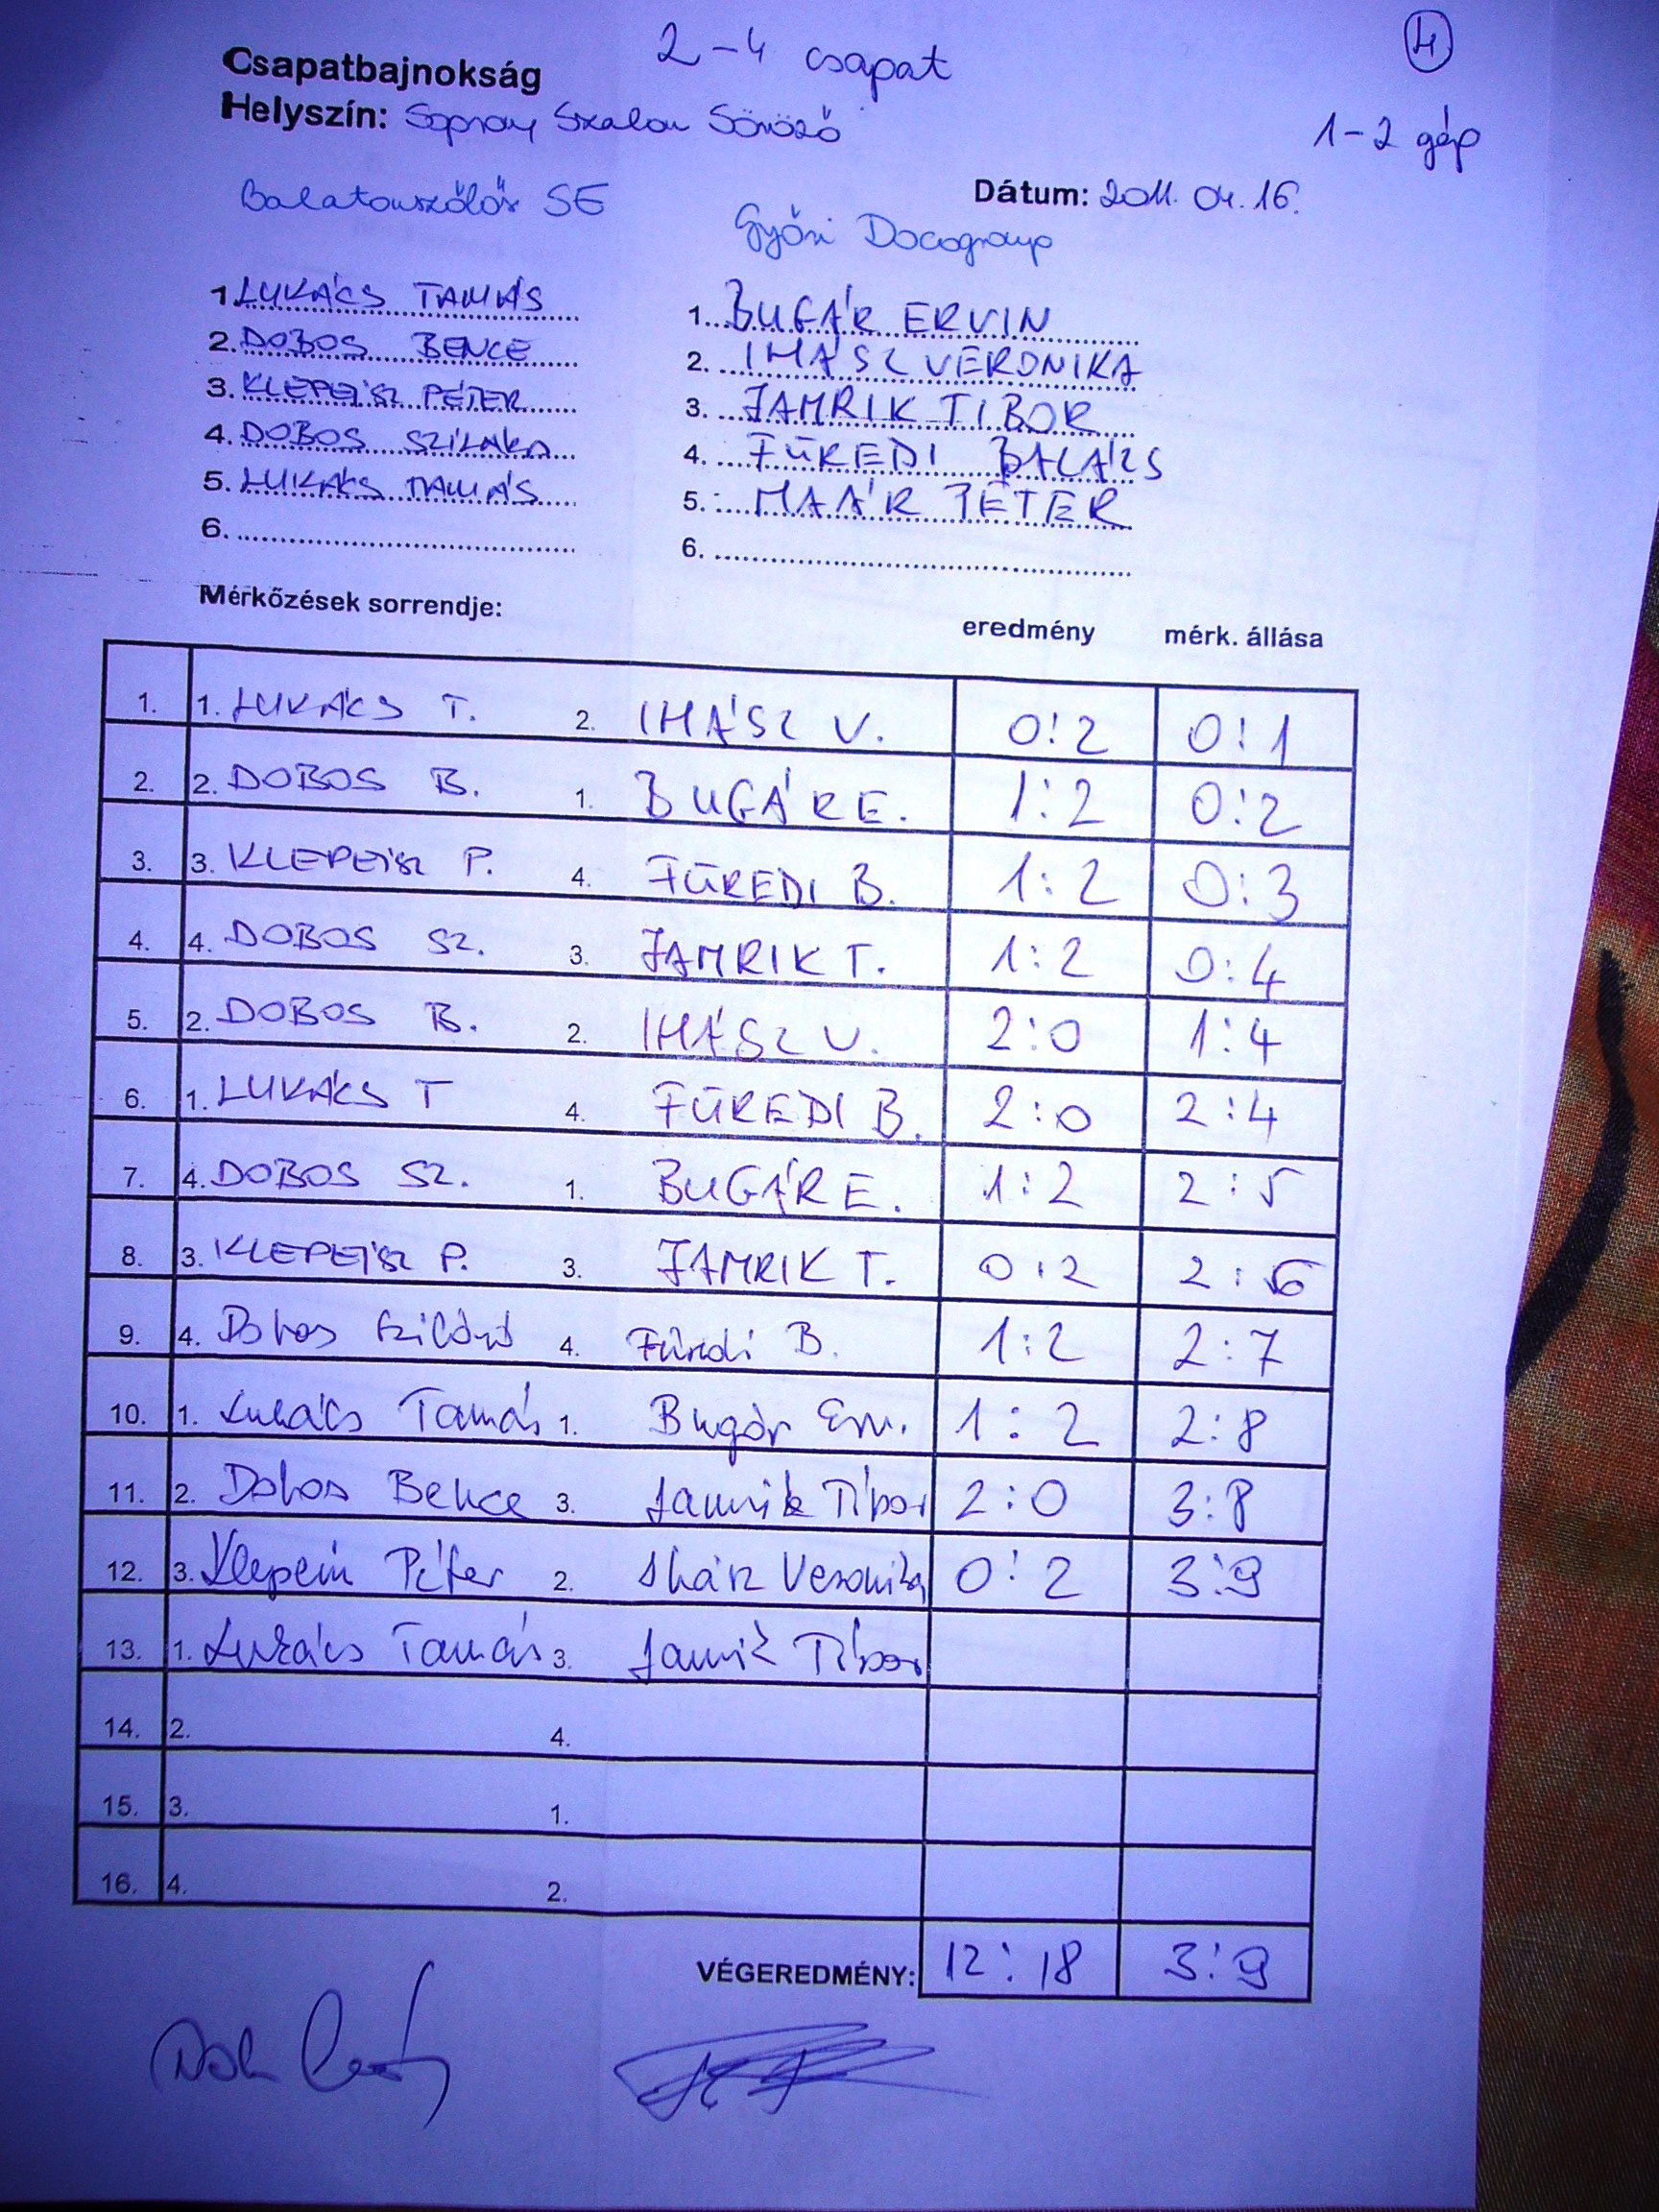 2-4 csapat
4
Csapatbajnokság
Helyszín: Soprony Szalon Söröző
1-2 gép
Dátum: 2011. 04. 16.
Balatonszőlős SE
Győri Docogroup
1. LUKÁCS TAMÁS
2. DOBOS BENCE
3. KLEPEISZ PÉTER
4. DOBOS SZILÁRD
5. LUKÁCS TAMÁS
6.
1. BUGÁR ERVIN
2. IHÁSZ VERONIKA
3. JAMRIK TIBOR
4. FÜREDI BALÁZS
5. MAÁR PÉTER
6.
Mérkőzések sorrendje:
eredmény mérk. állása
1. 1. LUKÁCS T. 2. IHÁSZ V. 0:2 0:1
2. 2. DOBOS B. 1. BUGÁR E. 1:2 0:2
3. 3. KLEPEISZ P. 4. FÜREDI B. 1:2 0:3
4. 4. DOBOS SZ. 3. JAMRIK T. 1:2 0:4
5. 2. DOBOS B. 2. IHÁSZ V. 2:0 1:4
6. 1. LUKÁCS T 4. FÜREDI B. 2:0 2:4
7. 4. DOBOS SZ. 1. BUGÁR E. 1:2 2:5
8. 3. KLEPEISZ P. 3. JAMRIK T. 0:2 2:6
9. 4. Dobos Szilárd 4. Füredi B. 1:2 2:7
10. 1. Lukács Tamás 1. Bugár Erv. 1:2 2:8
11. 2. Dobos Bence 3. Jamrik Tibor 2:0 3:8
12. 3. Klepeis Péter 2. Ihász Veronika 0:2 3:9
13. 1. Lukács Tamás 3. Jamrik Tibor
14. 2. 4.
15. 3. 1.
16. 4. 2.
VÉGEREDMÉNY: 12:18 3:9